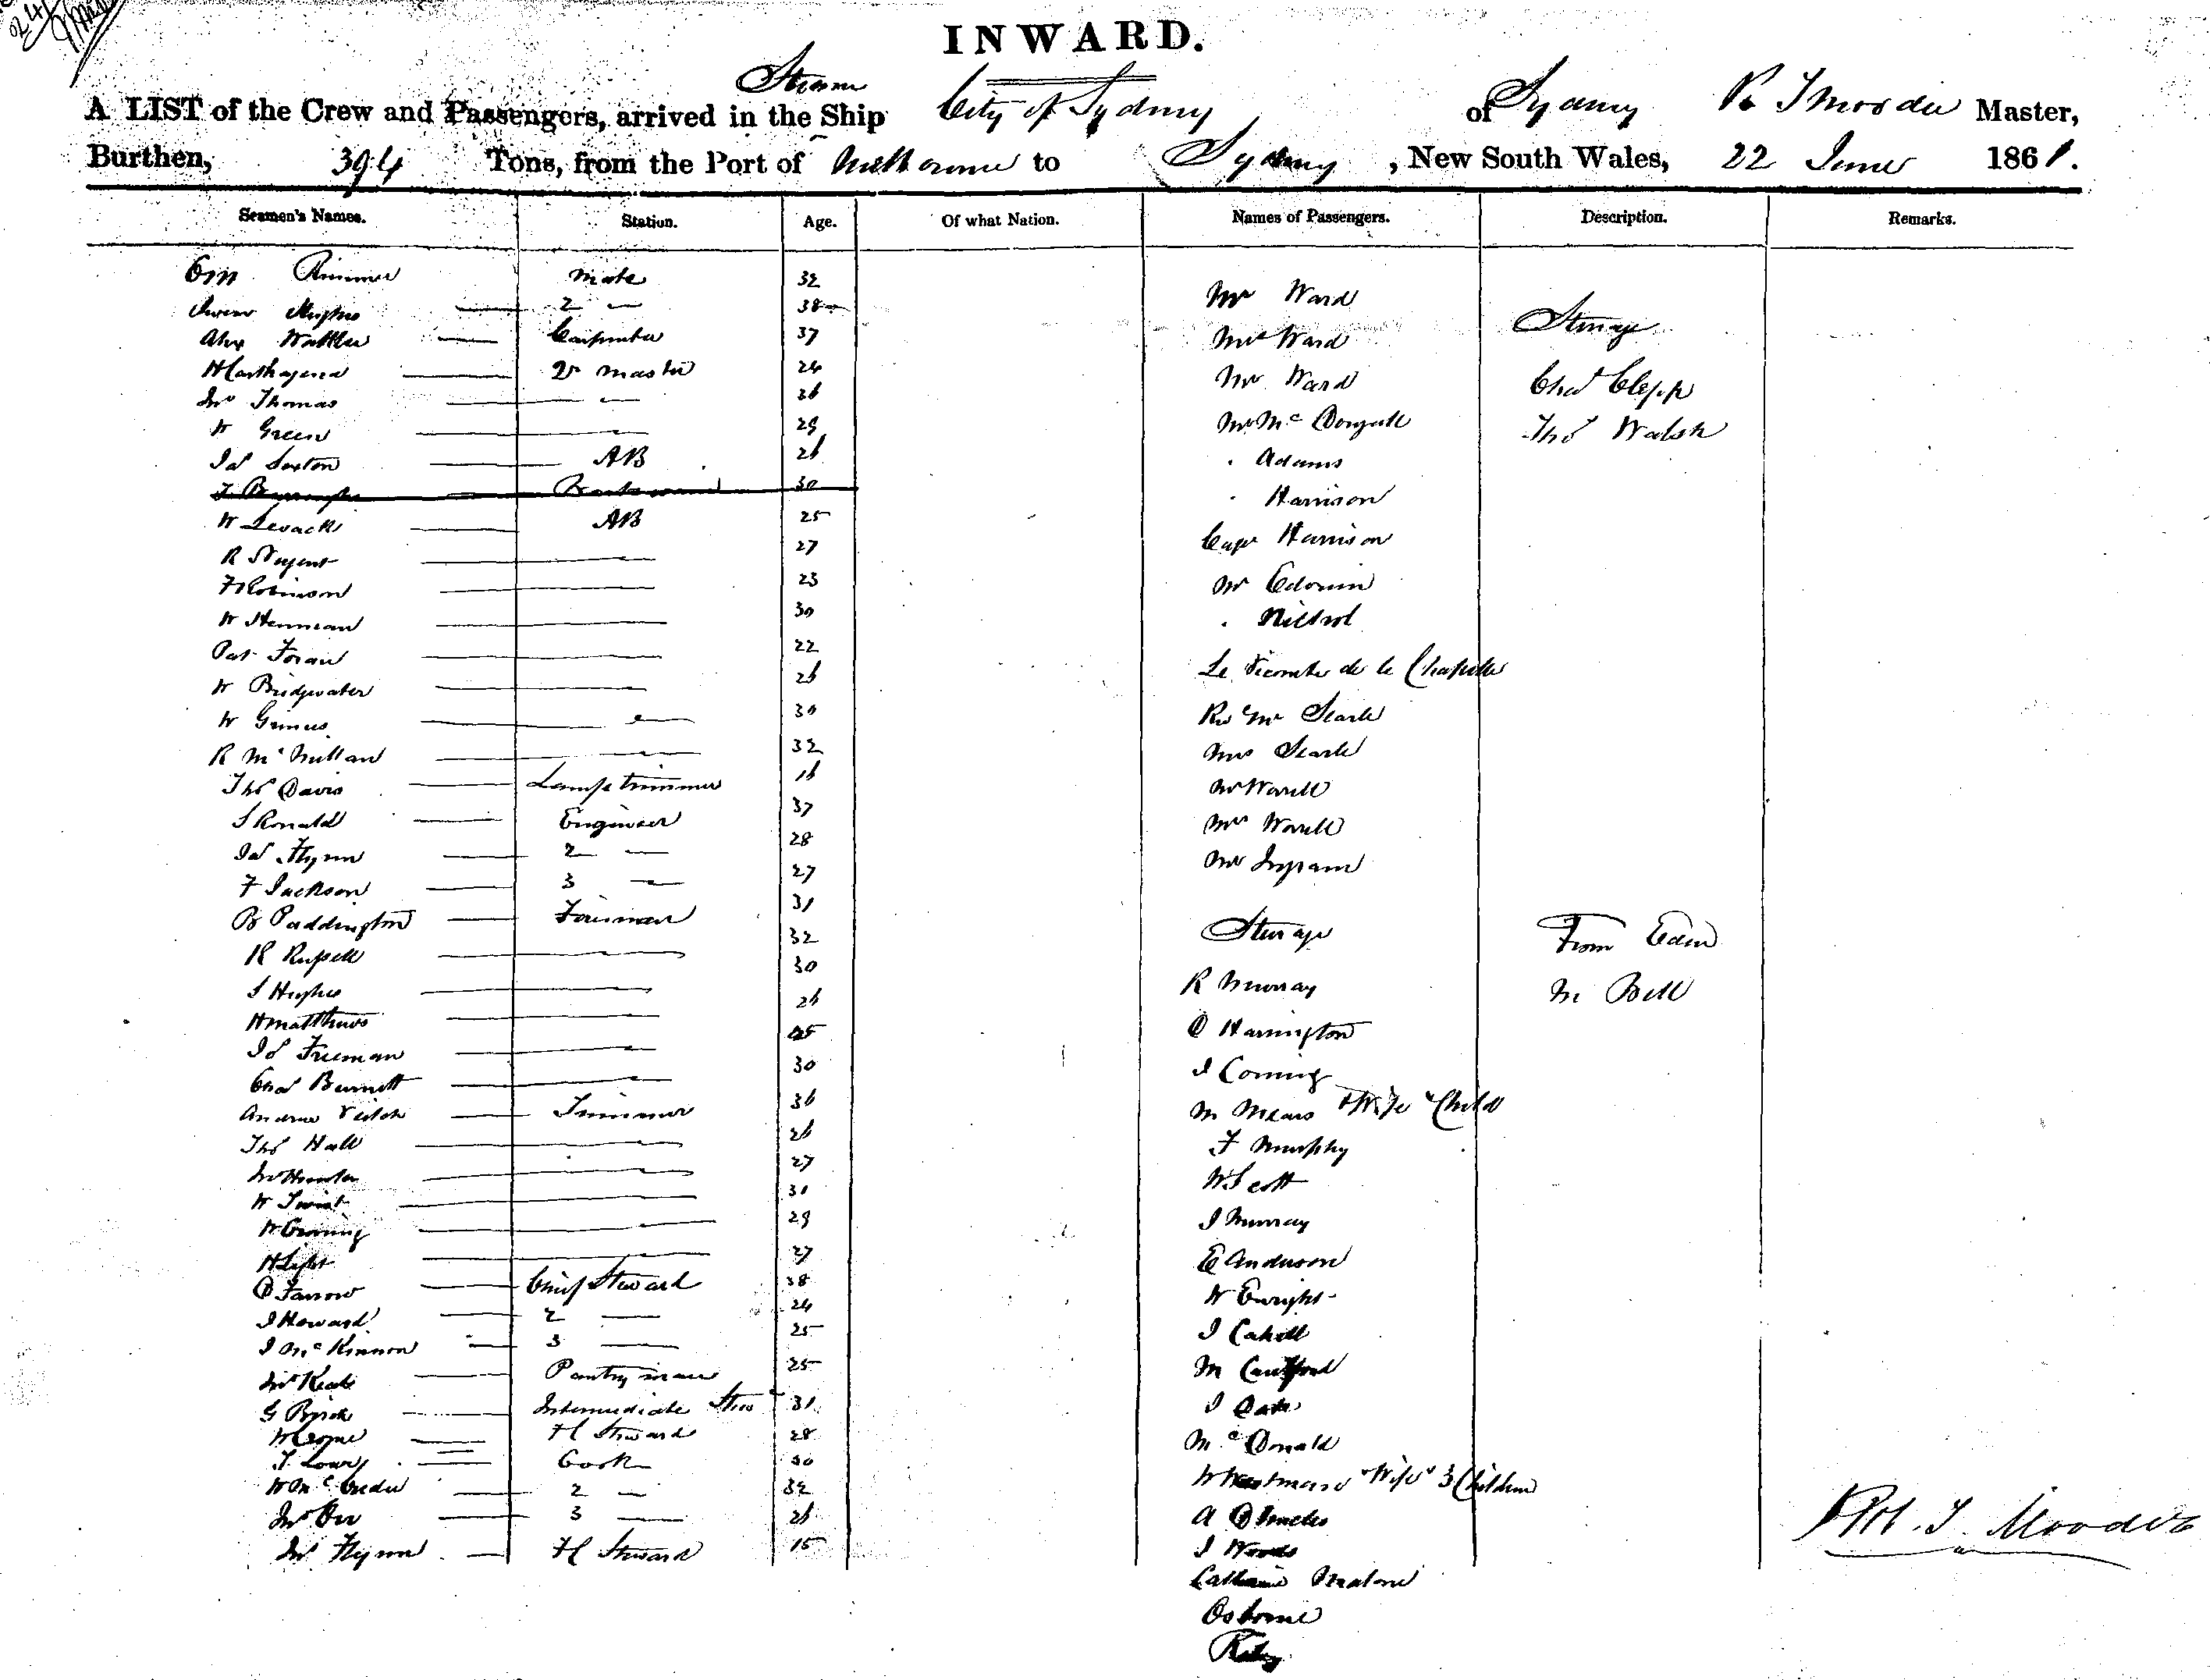 INWARD.
Steam
A LIST of the Crew and Passengers, arrived in the Ship City of Sydney of Sydney R T Moodie Master,
Burthen, 394 Tons, from the Port of Melbourne to Sydney, New South Wales, 22 June 1861.
Seamen's Names. Station. Age. Of what Nation. Names of Passengers. Description. Remarks.
Rimmer Mate 32
Hughes 2 — 38
Alex Carpenter 37
H Carthagena Qr Master 24
Jno Thomas — 36
W Green — 29
Jas Sexton AB 26
30
W Levack AB 25
R Nugent — 27
F Robinson — 23
W Henman — 30
Pat Foran — 22
W Bridgwater — 26
W Grimes — 30
R McMillan — 32
Thos Davis Lamp trimmer 16
S Ronald Engineer 37
Jas Flynn 2 — 28
F Jackson 3 — 27
B Paddington Fireman 31
R Russell — 32
S Hughes — 30
H Matthews — 26
Js Freeman — 25
Chas Burnett — 30
Andrew Veitch Trimmer 36
Thos Hall — 26
Jno Hunter — 27
W Twist — 30
29
H Light — 27
D Farrow Chief Steward 38
J Howard 2 — 24
J McKinnon 3 — 25
Jno Keale Pantryman 25
G Birch Intermediate Stewd 31
Steward 28
T Lowry Cook 30
W McCredie 2 — 32
Jno Orr 3 — 26
Jno Flynn Steward 15
Mr Ward
Mrs Ward
Mr Ward
Mr McDougall
" Adams
" Harrison
Capt Harrison
Mr Edwin
" Nichol
Le Vicomte de la Chapelle
Rev Mr Searle
Mrs Searle
Mr Worell
Mrs Worell
Mr Ingram
Steerage
R Murray
D Harrington
J Coming
M Mears & Wife & Child
F Murphy
W Scott
J Murray
E Anderson
W Enright
J Cahill
M Crawford
J Oats
McDonald
Wife & 3 Children
A
J Woods
Catherine Malone
Osborne
Riley
Steerage
Chas Clepp
Thos Walsh
From Eden
M Bell
Rt. T. Moodie